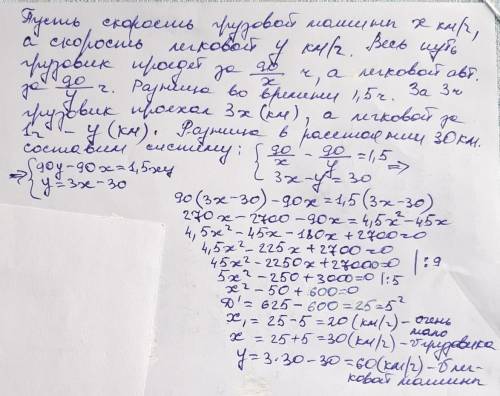 Пусть скорость грузовой машины x км/г,
а скорость легковой y км/г. Весь путь
грузовик проедет за 90/x ч, а легковой авт.
за 90/y ч. Разница во времени 1,5 ч. За 3ч
грузовик проехал 3x (км), а легковой за
1ч - y (км). Разница в расстоянии 30 км.
составим систему: { 90/x - 90/y = 1,5 ⇒
3x-y = 30
⇒ { 90y-90x=1,5xy
y=3x-30
90(3x-30)-90x=1,5(3x-30)
270x-2700-90x=4,5x²-45x
4,5x²-45x-180x+2700=0
4,5x²-225x+2700=0
45x²-2250x+27000=0 |:9
5x²-250+3000=0 |:5
x²-50+600=0
D¹=625-600=25=5²
x₁=25-5=20 (км/г) - очень
мало
x=25+5=30 (км/г) - v грузовика
y=3·30-30=60 (км/г) - v лег-
ковой машины